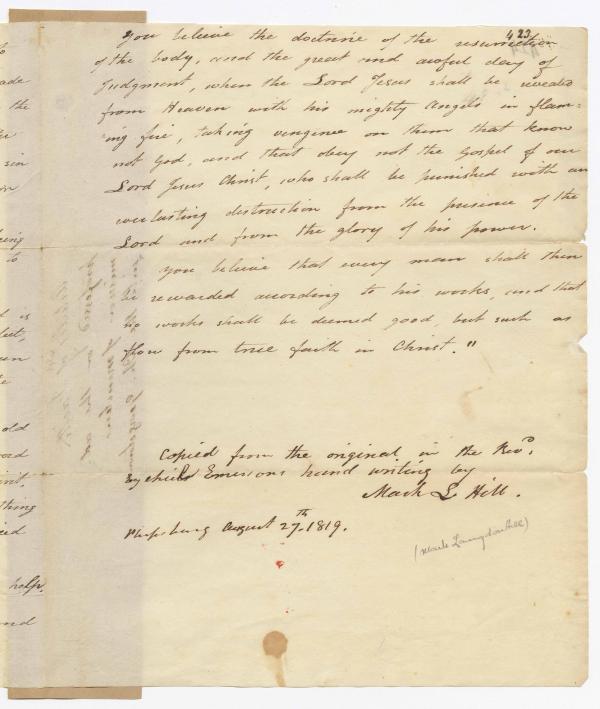 423
You believe the doctrine of the resurrection
of the body, and the great and awful day of
Judgment, when the Lord Jesus shall be revealed
from Heaven with his mighty Angels in flam=
ing fire, taking vengence on them that know
not God, and that obey not the Gospel of our
Lord Jesus Christ, who shall be punished with an
everlasting distruction from the presence of the
Lord and from the glory of his power.
You believe that every man shall then
be rewarded according to his works, and that
no works shall be deemed good, but such as
flow from true faith in Christ."
Copied from the original in the Revd.
Ezekiel Emersons hand writing by
Mark L Hill.
Phipsburg August 27th. 1819.
(Mark Langdon Hill)
ade
the
sin
to
is
old
thing
help.